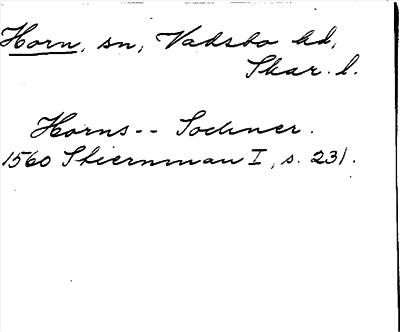 Horn, sn, Vadsbo hd,
Skar. l.
Horns -- Sochner.
1560 Stiernman I, s. 231.